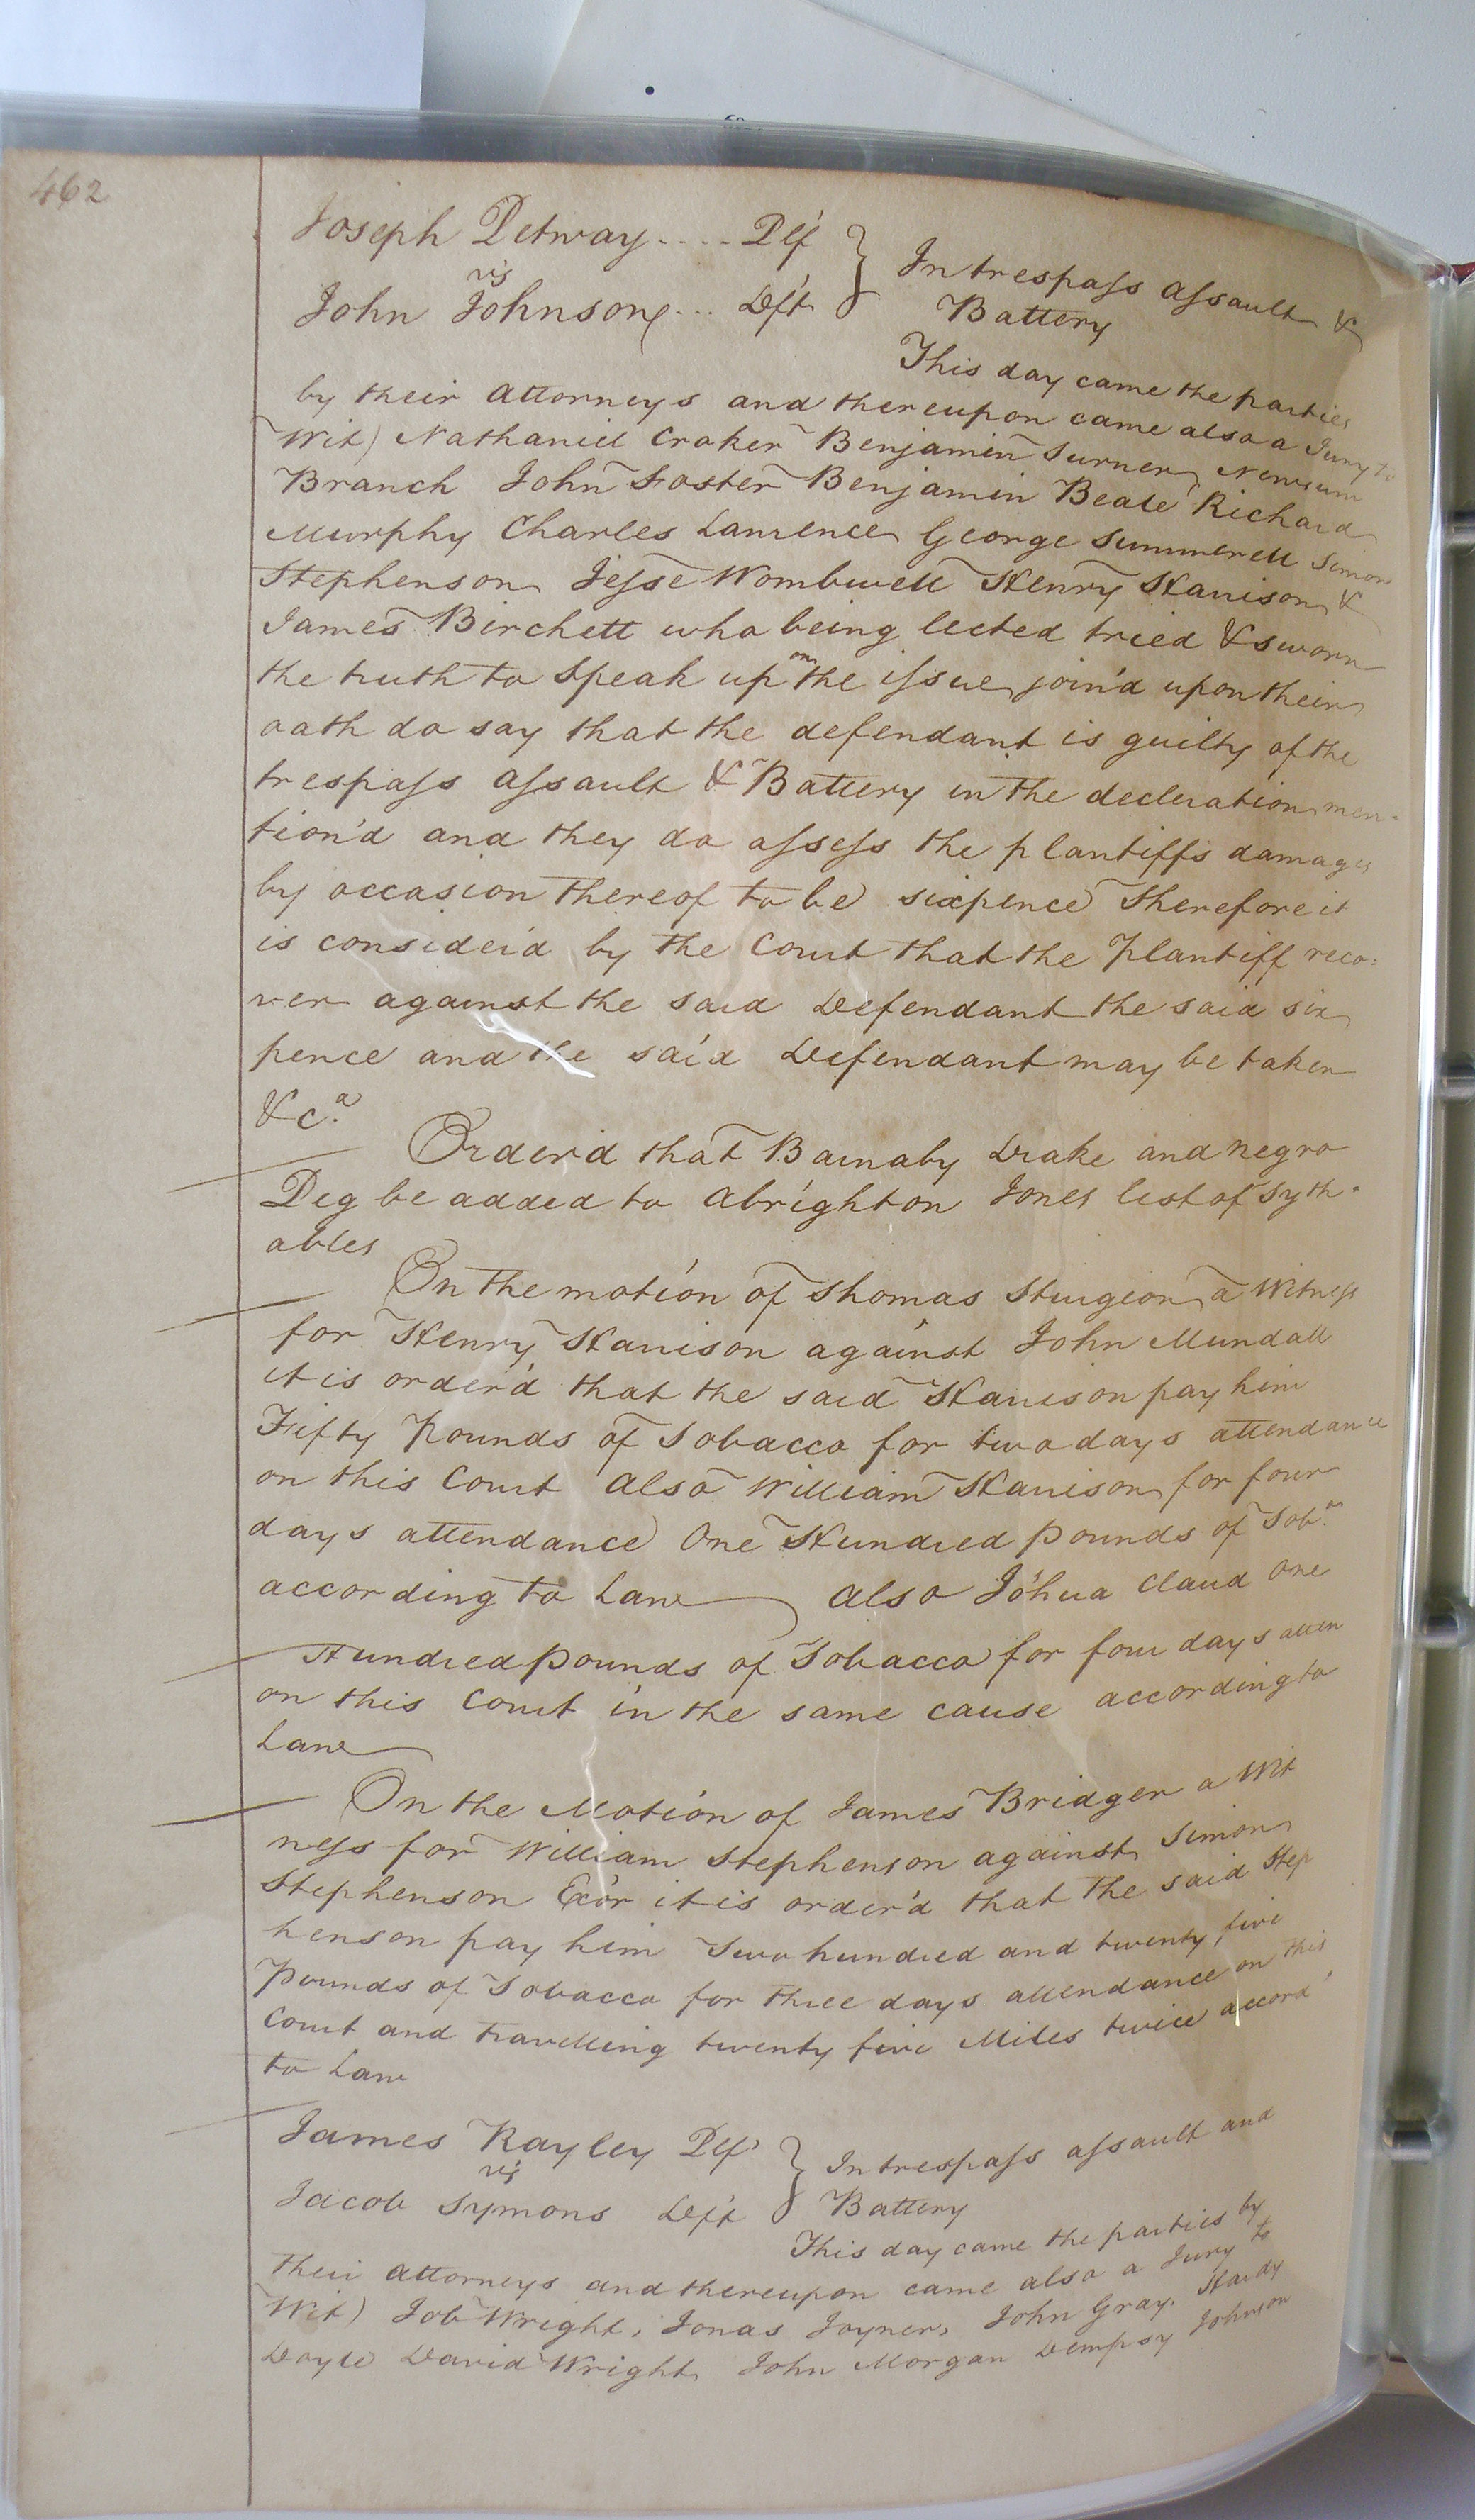 462
Joseph Petway .... Plf
vs
John Johnson ... Deft
In trespass assault &
Battery
This day came the parties
by their attorneys and thereupon came also a Jury to
Wit) Nathaniel Croker Benjamin Turner Newsum
Branch John Foster Benjamin Beale Richard
Murphy Charles Lawrence George Summerell Simon
Stephenson Jesse Wombwell Henry Harrison &
James Birchett who being lected tried & sworn
the truth to speak upon the issue join'd upon their
oath do say that the defendant is guilty of the
trespass assault & Battery in the decleration men-
tion'd and they do assess the plantiffs damages
by occasion thereof to be sixpence Therefore it
is consider'd by the Court that the Plantiff reco=
ver against the said Defendant the said six
pence and the said Defendant may be taken
&ca.
Order'd that Barnaby Drake and negro
Peg be added to Abrighton Jones list of Tyth-
ables
On the motion of Thomas Sturgeon a Witness
for Henry Harrison against John Mundall
it is order'd that the said Harrison pay him
Fifty Pounds of Tobacco for two days attendance
on this Court also William Harrison for four
days attendance One Hundred pounds of Tobo.
according to Law also Johua Claud One
Hundred pounds of Tobacco for four days atten
on this Court in the same cause according to
Law
On the Motion of James Bridger a Wit
ness for William Stephenson against Simon
Stephenson Exor it is order'd that the said Step
henson pay him Two hundred and twenty five
Pounds of Tobacco for three days attendance on this
Court and travelling twenty five Miles twice accord
to Law
James Rayley Plf
vs
Jacob Symons Deft
In trespass assault and
Battery
This day came the parties by
their attorneys and thereupon came also a Jury to
Wit) Job Wright, Jonas Joyner, John Gray, Hardy
Doyle David Wright John Morgan Dempsy Johnson